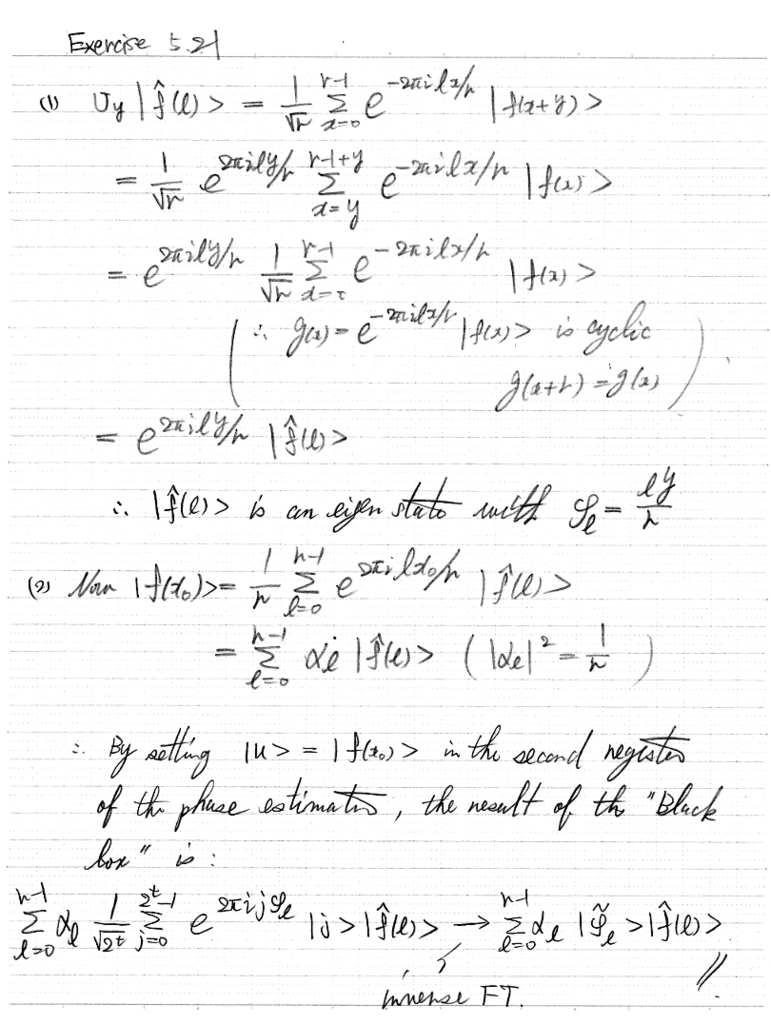 Exercise 5.21
(1) Uy |f̂(l)> = 1/√r Σ_{x=0}^{r-1} e^{-2πilx/r} |f(x+y)>
= 1/√r e^{2πily/r} Σ_{x=y}^{r-1+y} e^{-2πilx/r} |f(x)>
= e^{2πily/r} 1/√r Σ_{x=0}^{r-1} e^{-2πilx/r} |f(x)>
( ∵ g(x) = e^{-2πilx/r} |f(x)> is cyclic
g(x+r) = g(x) )
= e^{2πily/r} |f̂(l)>
∴ |f̂(l)> is an eigen state with φ_l = ly/r
(2) Now |f(x₀)> = 1/r Σ_{l=0}^{r-1} e^{2πilx₀/r} |f̂(l)>
= Σ_{l=0}^{r-1} α_l |f̂(l)> ( |α_l|² = 1/r )
∴ By setting |u> = |f(x₀)> in the second register
of the phase estimation, the result of the "Black
box" is :
Σ_{l=0}^{r-1} α_l 1/√2^t Σ_{j=0}^{2^t-1} e^{2πijφ_l} |j>|f̂(l)> → Σ_{l=0}^{r-1} α_l |φ̃_l>|f̂(l)>
inverse FT. //